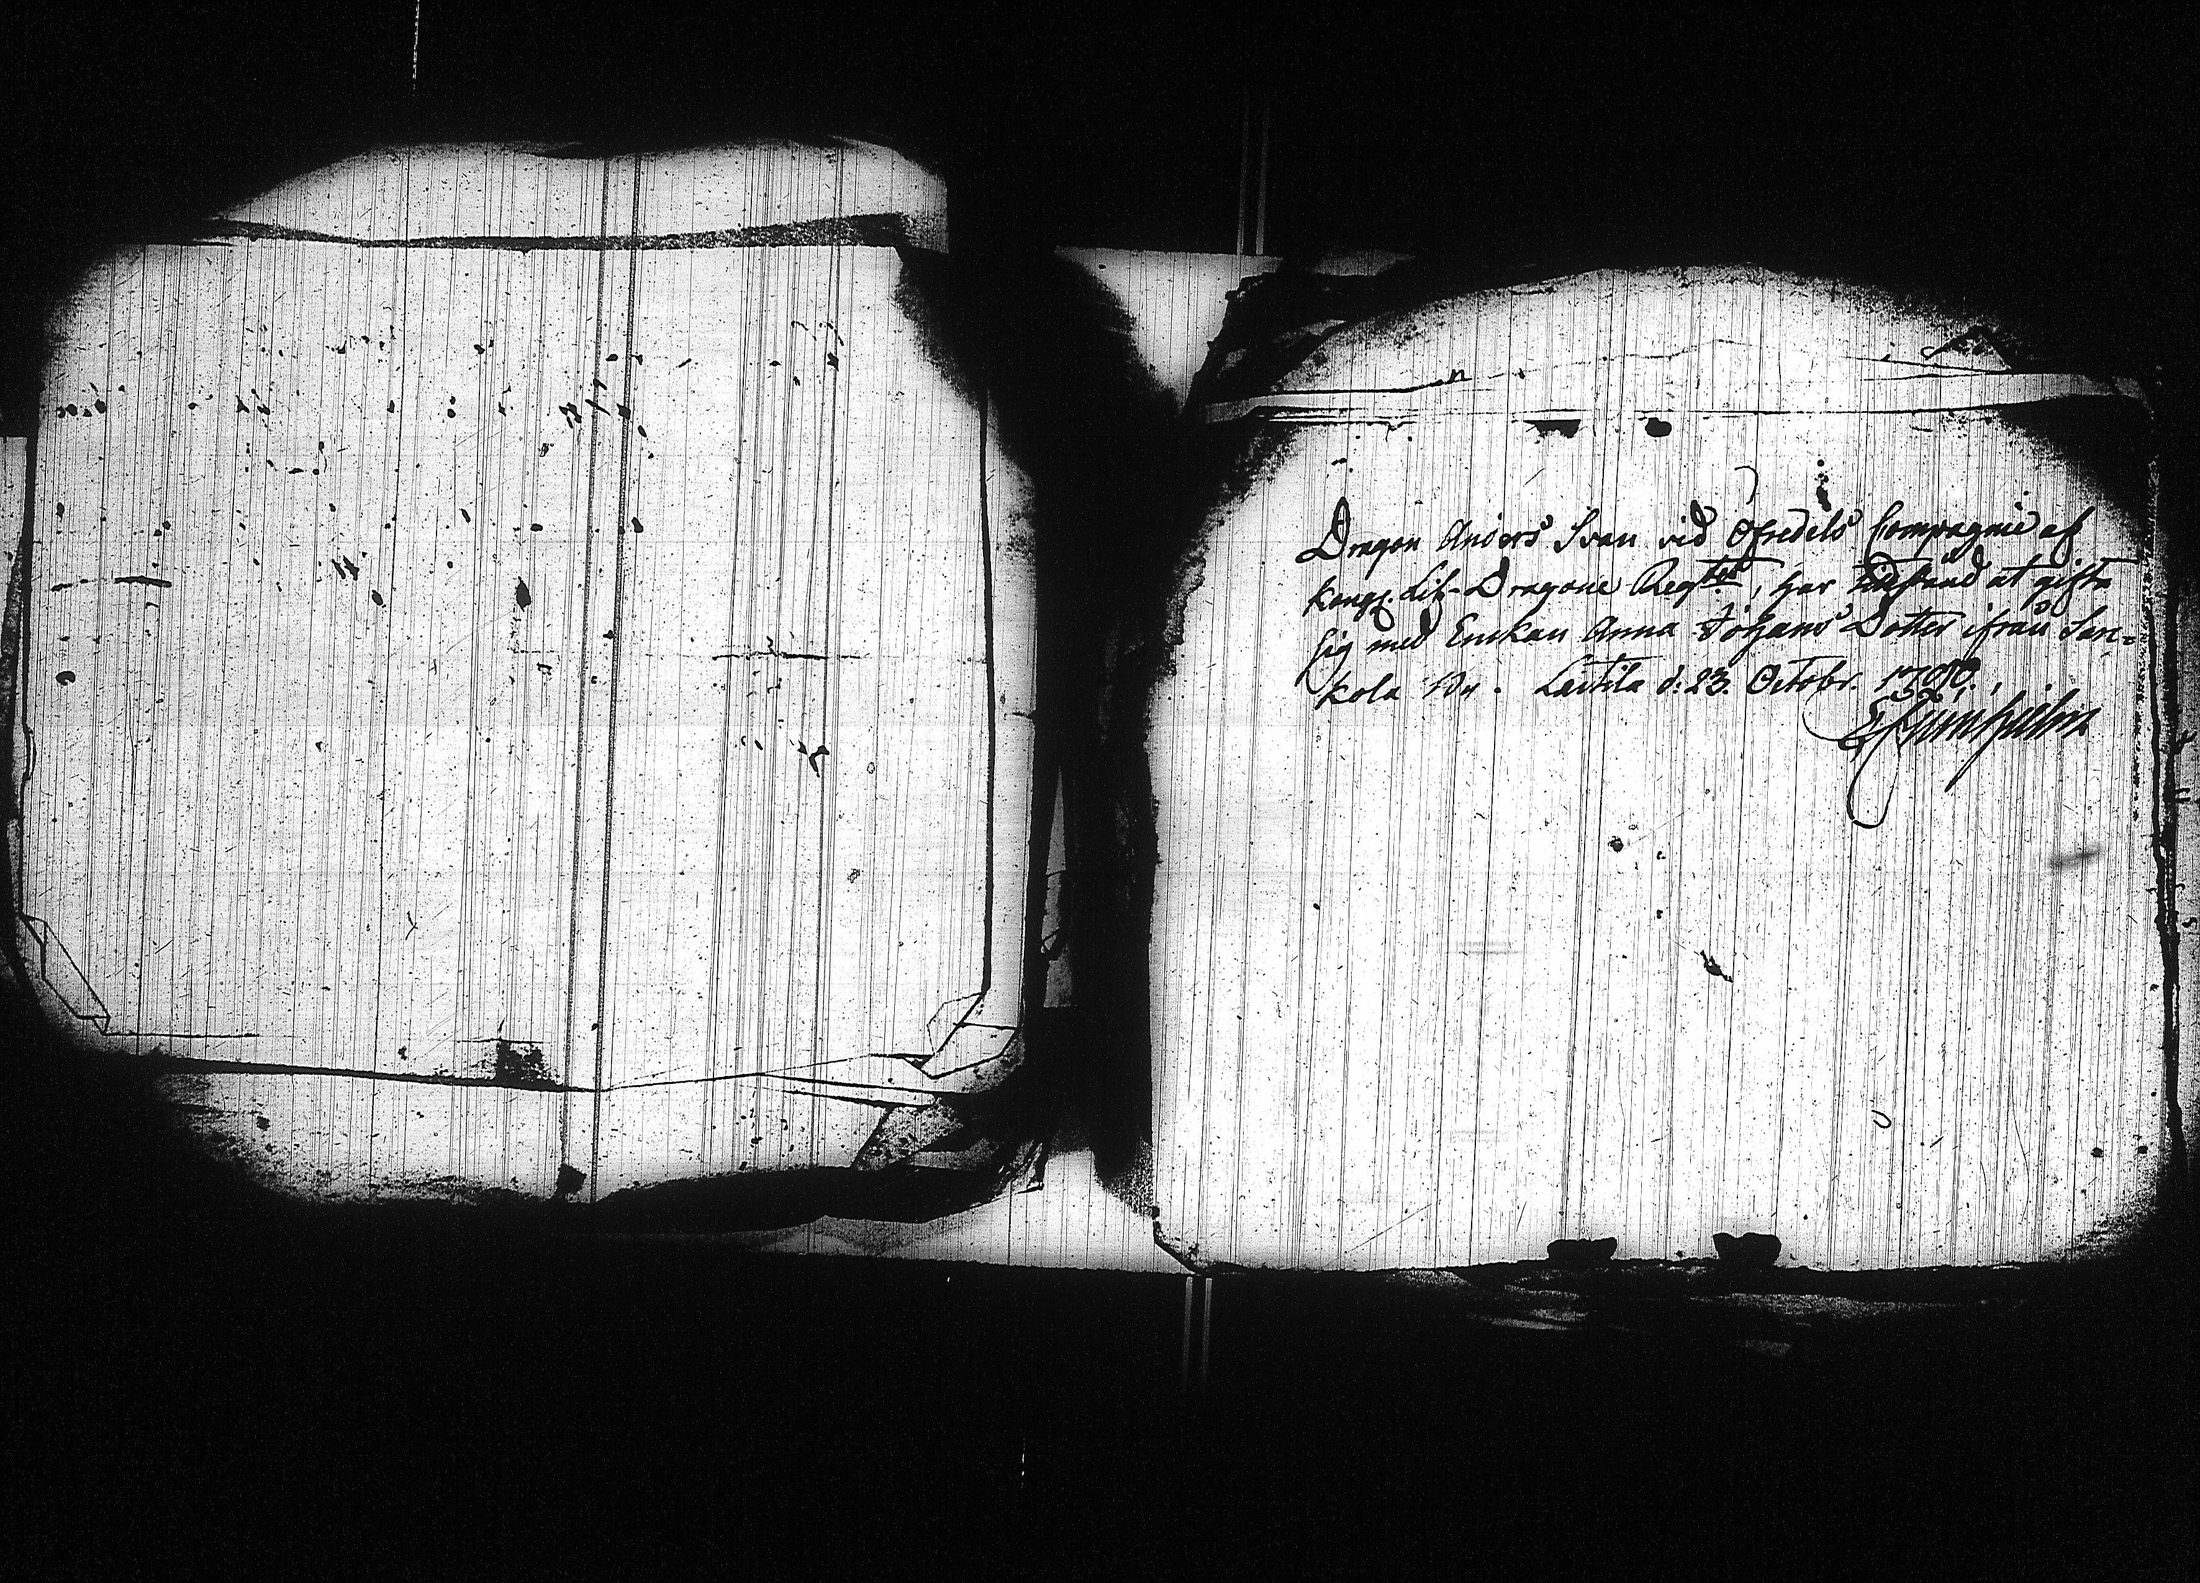 Dragon Anders Svan vid Öfredels Compagnie af
kongl. Lif-Dragone Regtet, har tilstånd at gifta
sig med Enckan Anna Johans Dotter ifrån Sar=
kola By. Laitila d: 23. Octobr.